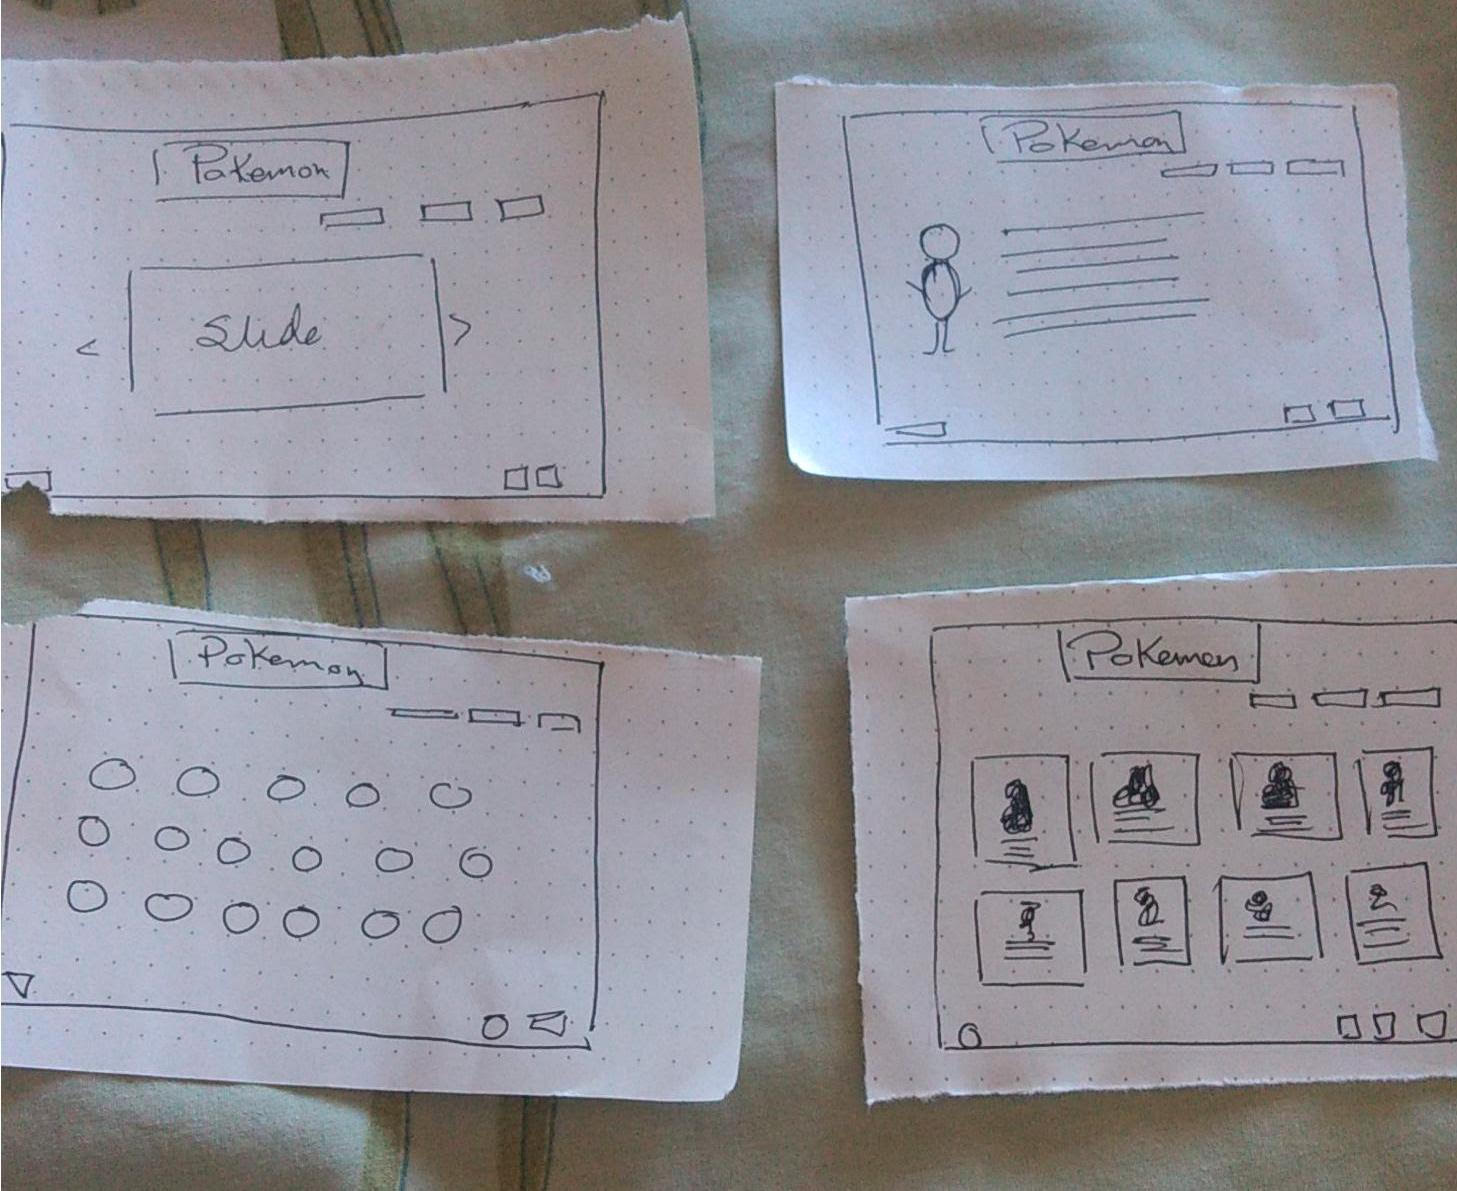 Pokemon
Slide
Pokemon
Pokemon
Pokemon